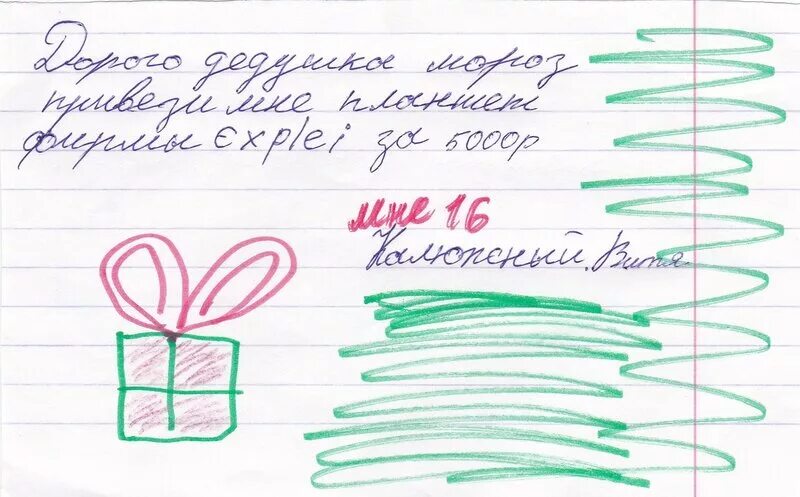 Дорого дедушка мороз
привези мне планшет
фирмы explei за 5000р
мне 16
Калюжный. Витя